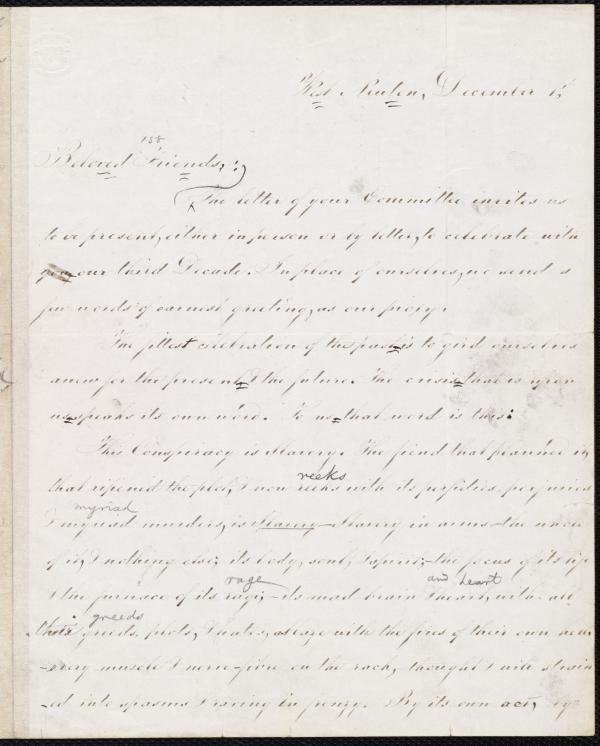 West Newton, December 1,
158
Beloved Friends,:
The letter of your Committee invites us
to be present, either in person or by letter, to celebrate with
you our third Decade. In place of ourselves, we send a
few words of earnest greeting, as our proxy.
The fittest celebration of the past is to gird ourselves
anew for the present & the future. The crisis that is upon
us speaks its own word. To us that word is this:
This Conspiracy is Slavery. The fiend that planned it,
reeks
that ripened the plot, & now reeks with its perfidies, perjuries
myriad
& myriad murders, is Slavery – Slavery in arms – the whole
of it, & nothing else; its body, soul, & spirit; – the focus of its
rage and heart
& the furnace of its rage; – its mad brain & heart, with all
greeds
their greeds, plots, & hates, ablaze with the fires of their own hell,
– every muscle & nerve-fibre on the rack, thought & will strain
-ed into spasms & raving in frenzy. By its own act,